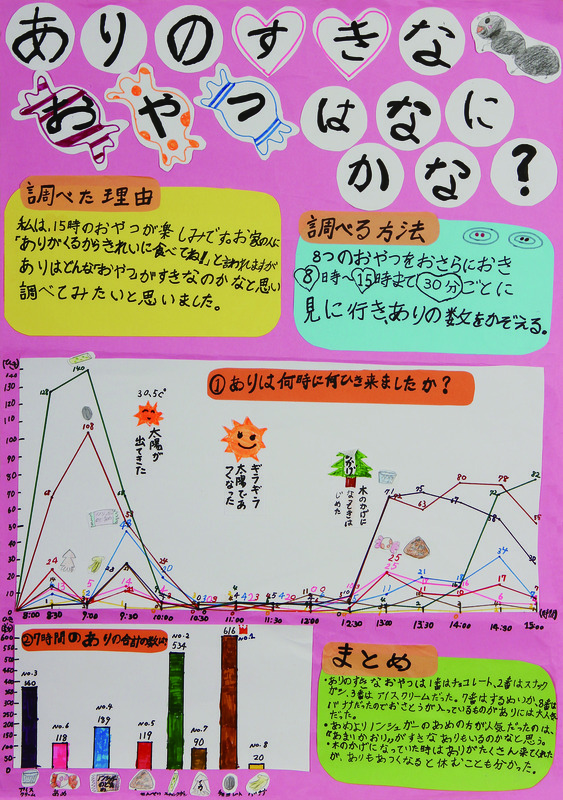 ありのすきな
おやつはなに
かな?
調べた理由
私は、15時のおやつが楽しみです。お家の人に
「ありがくるからきれいに食べてね!」と言われますが
ありはどんな「おやつ」がすきなのかなと思い
調べてみたいと思いました。
調べる方法
8つのおやつをおさらにおき
8時~15時まで30分ごとに
見に行き、ありの数をかぞえる。
①ありは何時に何ひき来ましたか?
30.5℃
太陽が
出てきた
ギラギラ
太陽であ
つくなった
木のかげに
なってきは
じめた
140
128
108
48
24
20
25
25
71
75
63
67
80
78
72
82
34
17
8:00 8:30 9:00 9:30 10:00 10:30 11:00 11:30 12:00 12:30 13:00 13:30 14:00 14:30 15:00
②7時間のありの合計の数は
600
500
400
300
200
100
0
No.3
No.6
118
No.4
189
No.5
119
No.2
534
No.7
90
616
No.1
No.8
20
アイスクリーム
あめ
まとめ
・ありのすきなおやつは1番はチョコレート、2番はスナック
が、3番はアイスクリームだった。7番はするめいか、8番は
バナナだったのでおさとうが入っているものがありには大人気
だった。
・あめよりノンシュガーのあめの方が人気だったのは、
"あまいかおり"がすきなありもいるのかなと思う。
・木のかげになっていた時はありがたくさん来てくれた
が、ありもあつくなると休むことも分かった。